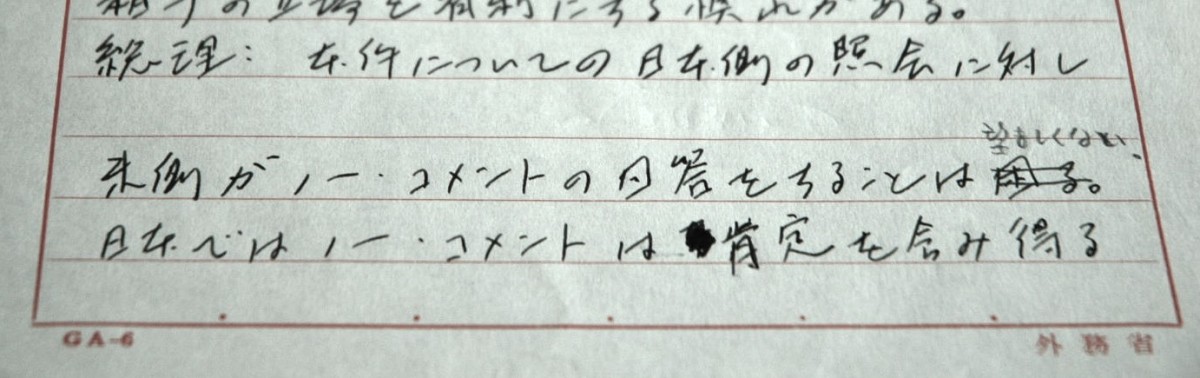 相手の立場を有利にする惧れがある。
総理: 本件についての日本側の照会に対し
望ましくない。
米側がノー・コメントの回答をすることは困る。
日本ではノー・コメントは肯定を含み得る
GA-6
外務省